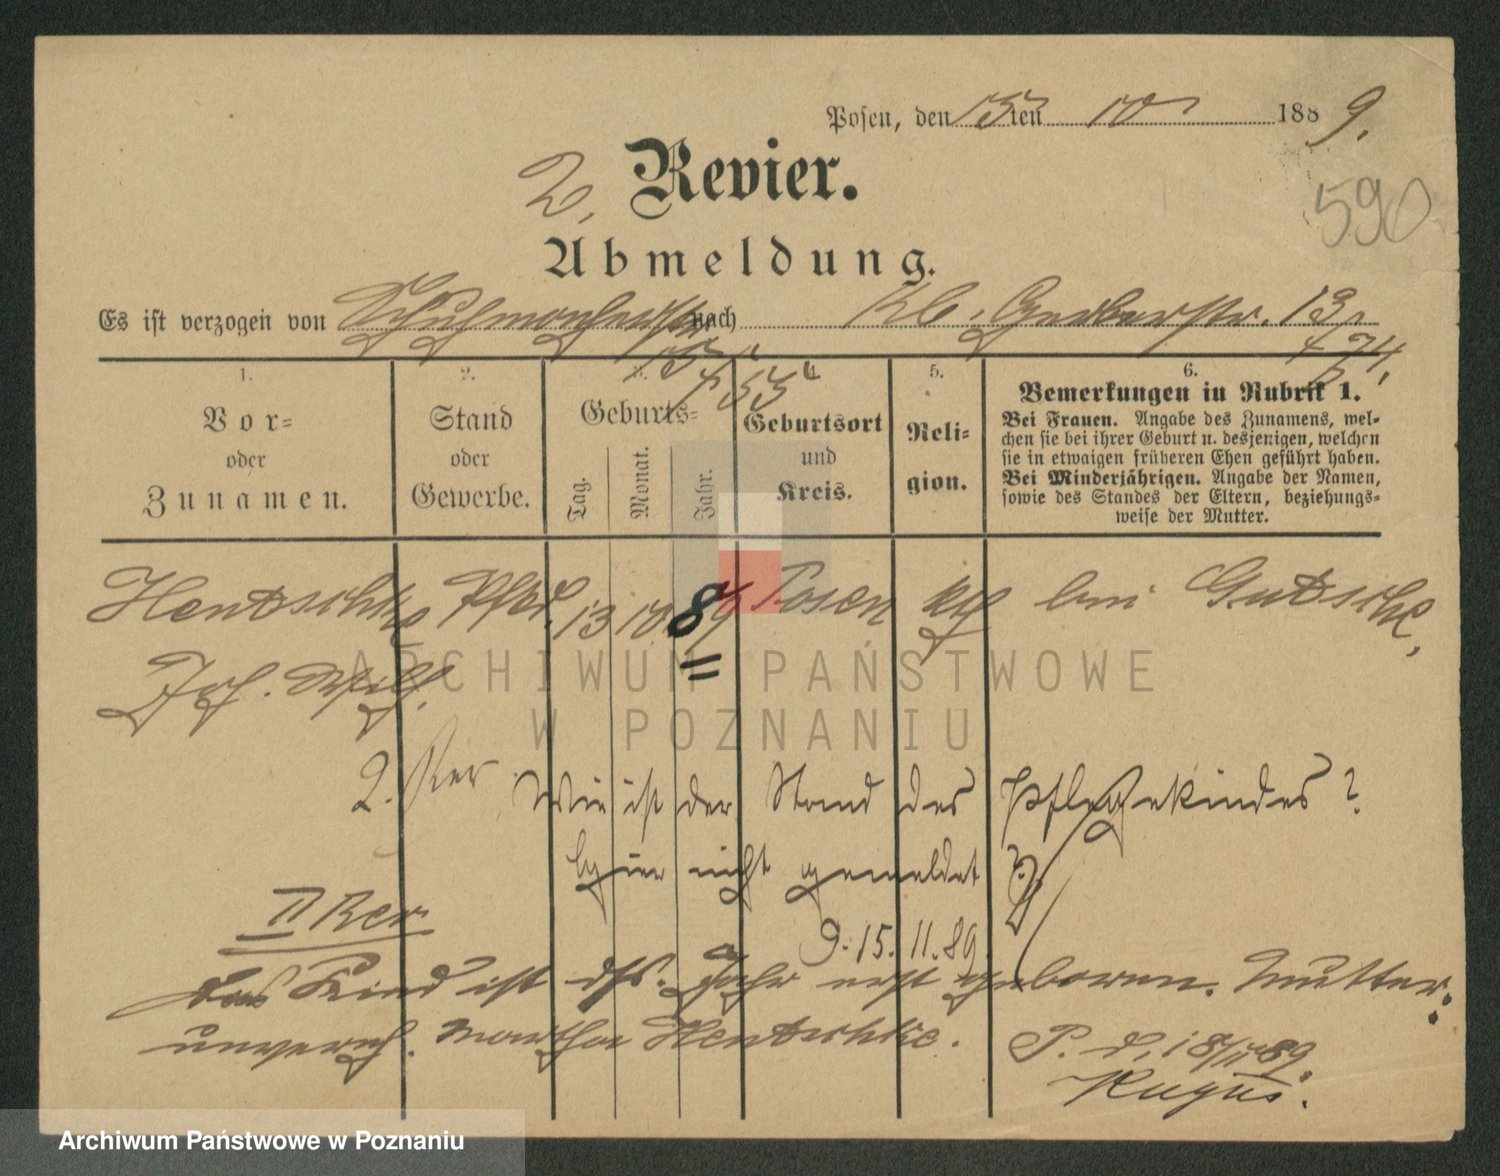 Posen, den 15ten 10 1889.
2. Revier.
590
Abmeldung.
Es ist verzogen von Schuhmacherstr. nach Kl. Gerberstr. 13,
15.
1.
Vor-
oder
Zunamen.
2.
Stand
oder
Gewerbe.
3.
Geburts-
Tag.
Monat.
Jahr.
4.
Geburtsort
und
Kreis.
5.
Reli-
gion.
6.
Bemerkungen in Rubrik 1.
Bei Frauen. Angabe des Zunamens, wel-
chen sie bei ihrer Geburt u. desjenigen, welchen
sie in etwaigen früheren Ehen geführt haben.
Bei Minderjährigen. Angabe der Namen,
sowie des Standes der Eltern, beziehungs-
weise der Mutter.
Hentschke 13 10 89 Posen kth bei Gutsche,
Joh.
2. Rer Wie ist der Stand des Pflegekindes?
Hier nicht gemeldet
15.11.89
II Rer
Das Kind ist dss. Jahr erst geboren. Mutter:
unvereh. Martha Hentschke. P. d. 18/11 89.
ARCHIWUM PAŃSTWOWE
W POZNANIU
Archiwum Państwowe w Poznaniu